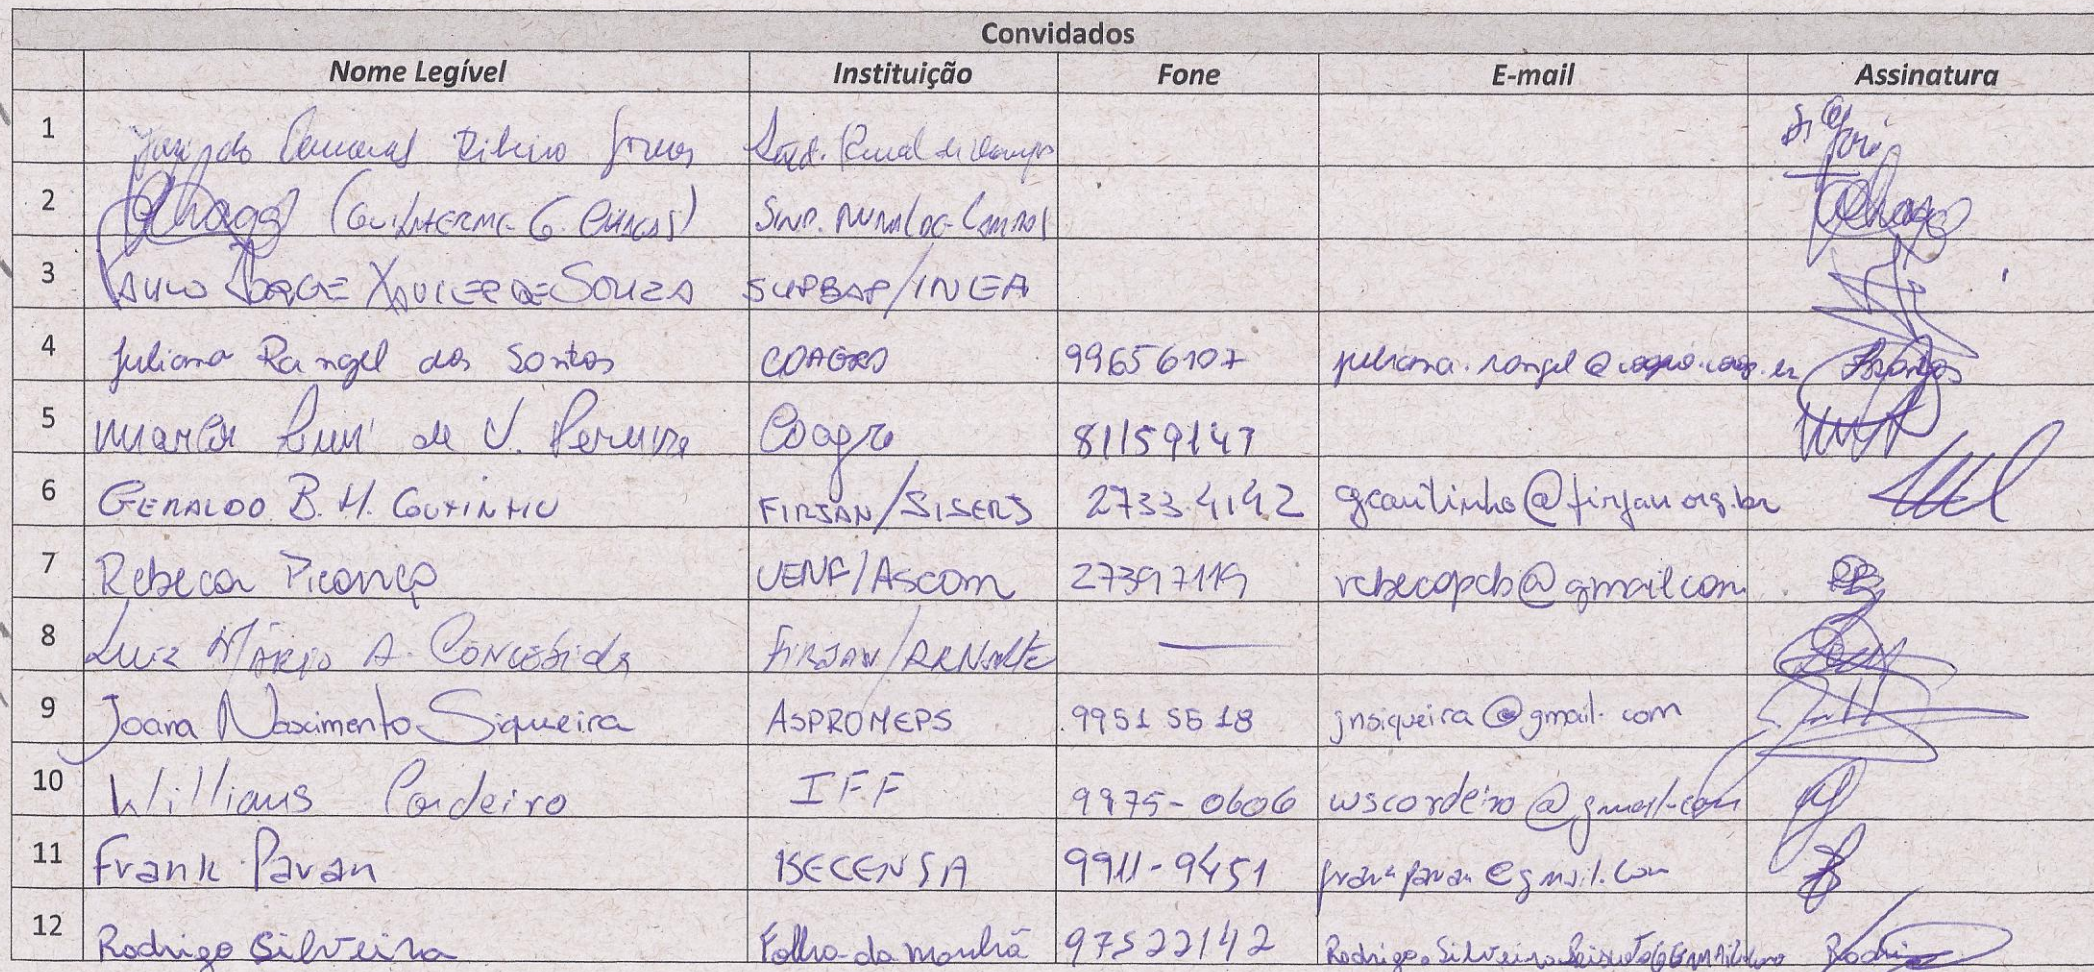 Convidados
Nome Legível Instituição Fone E-mail Assinatura
1 Ribeiro Sind. Rural de Campos
2 Chagas (Guilherme G. Chagas) Sind. Rural de Campos Chagas
3 Paulo Jorge Xavier de Souza SUPBAP/INEA
4 Juliana Rangel dos Santos COAGRO 99656107 juliana.rangel@coagro.coop.br
5 de V. Pereira Coagro 81159147
6 GERALDO B. H. COUTINHO FIRJAN/SISERJ 2733.4142 gcoutinho@firjan.org.br
7 Rebeca Picanço UENF/Ascom 27397119 rebecapcb@gmail.com
8 Luiz Mário A. Concebida FIRJAN/
9 Joana Nascimento Siqueira ASPROMEPS 9951 5518 jnsiqueira@gmail.com
10 Willians Cordeiro IFF 9975-0606 wscordeiro@gmail.com
11 Frank Pavan ISECENSA 9911-9451 frankpavan@gmail.com
12 Rodrigo Silveira Folha da Manhã 97522142 Rodrigo